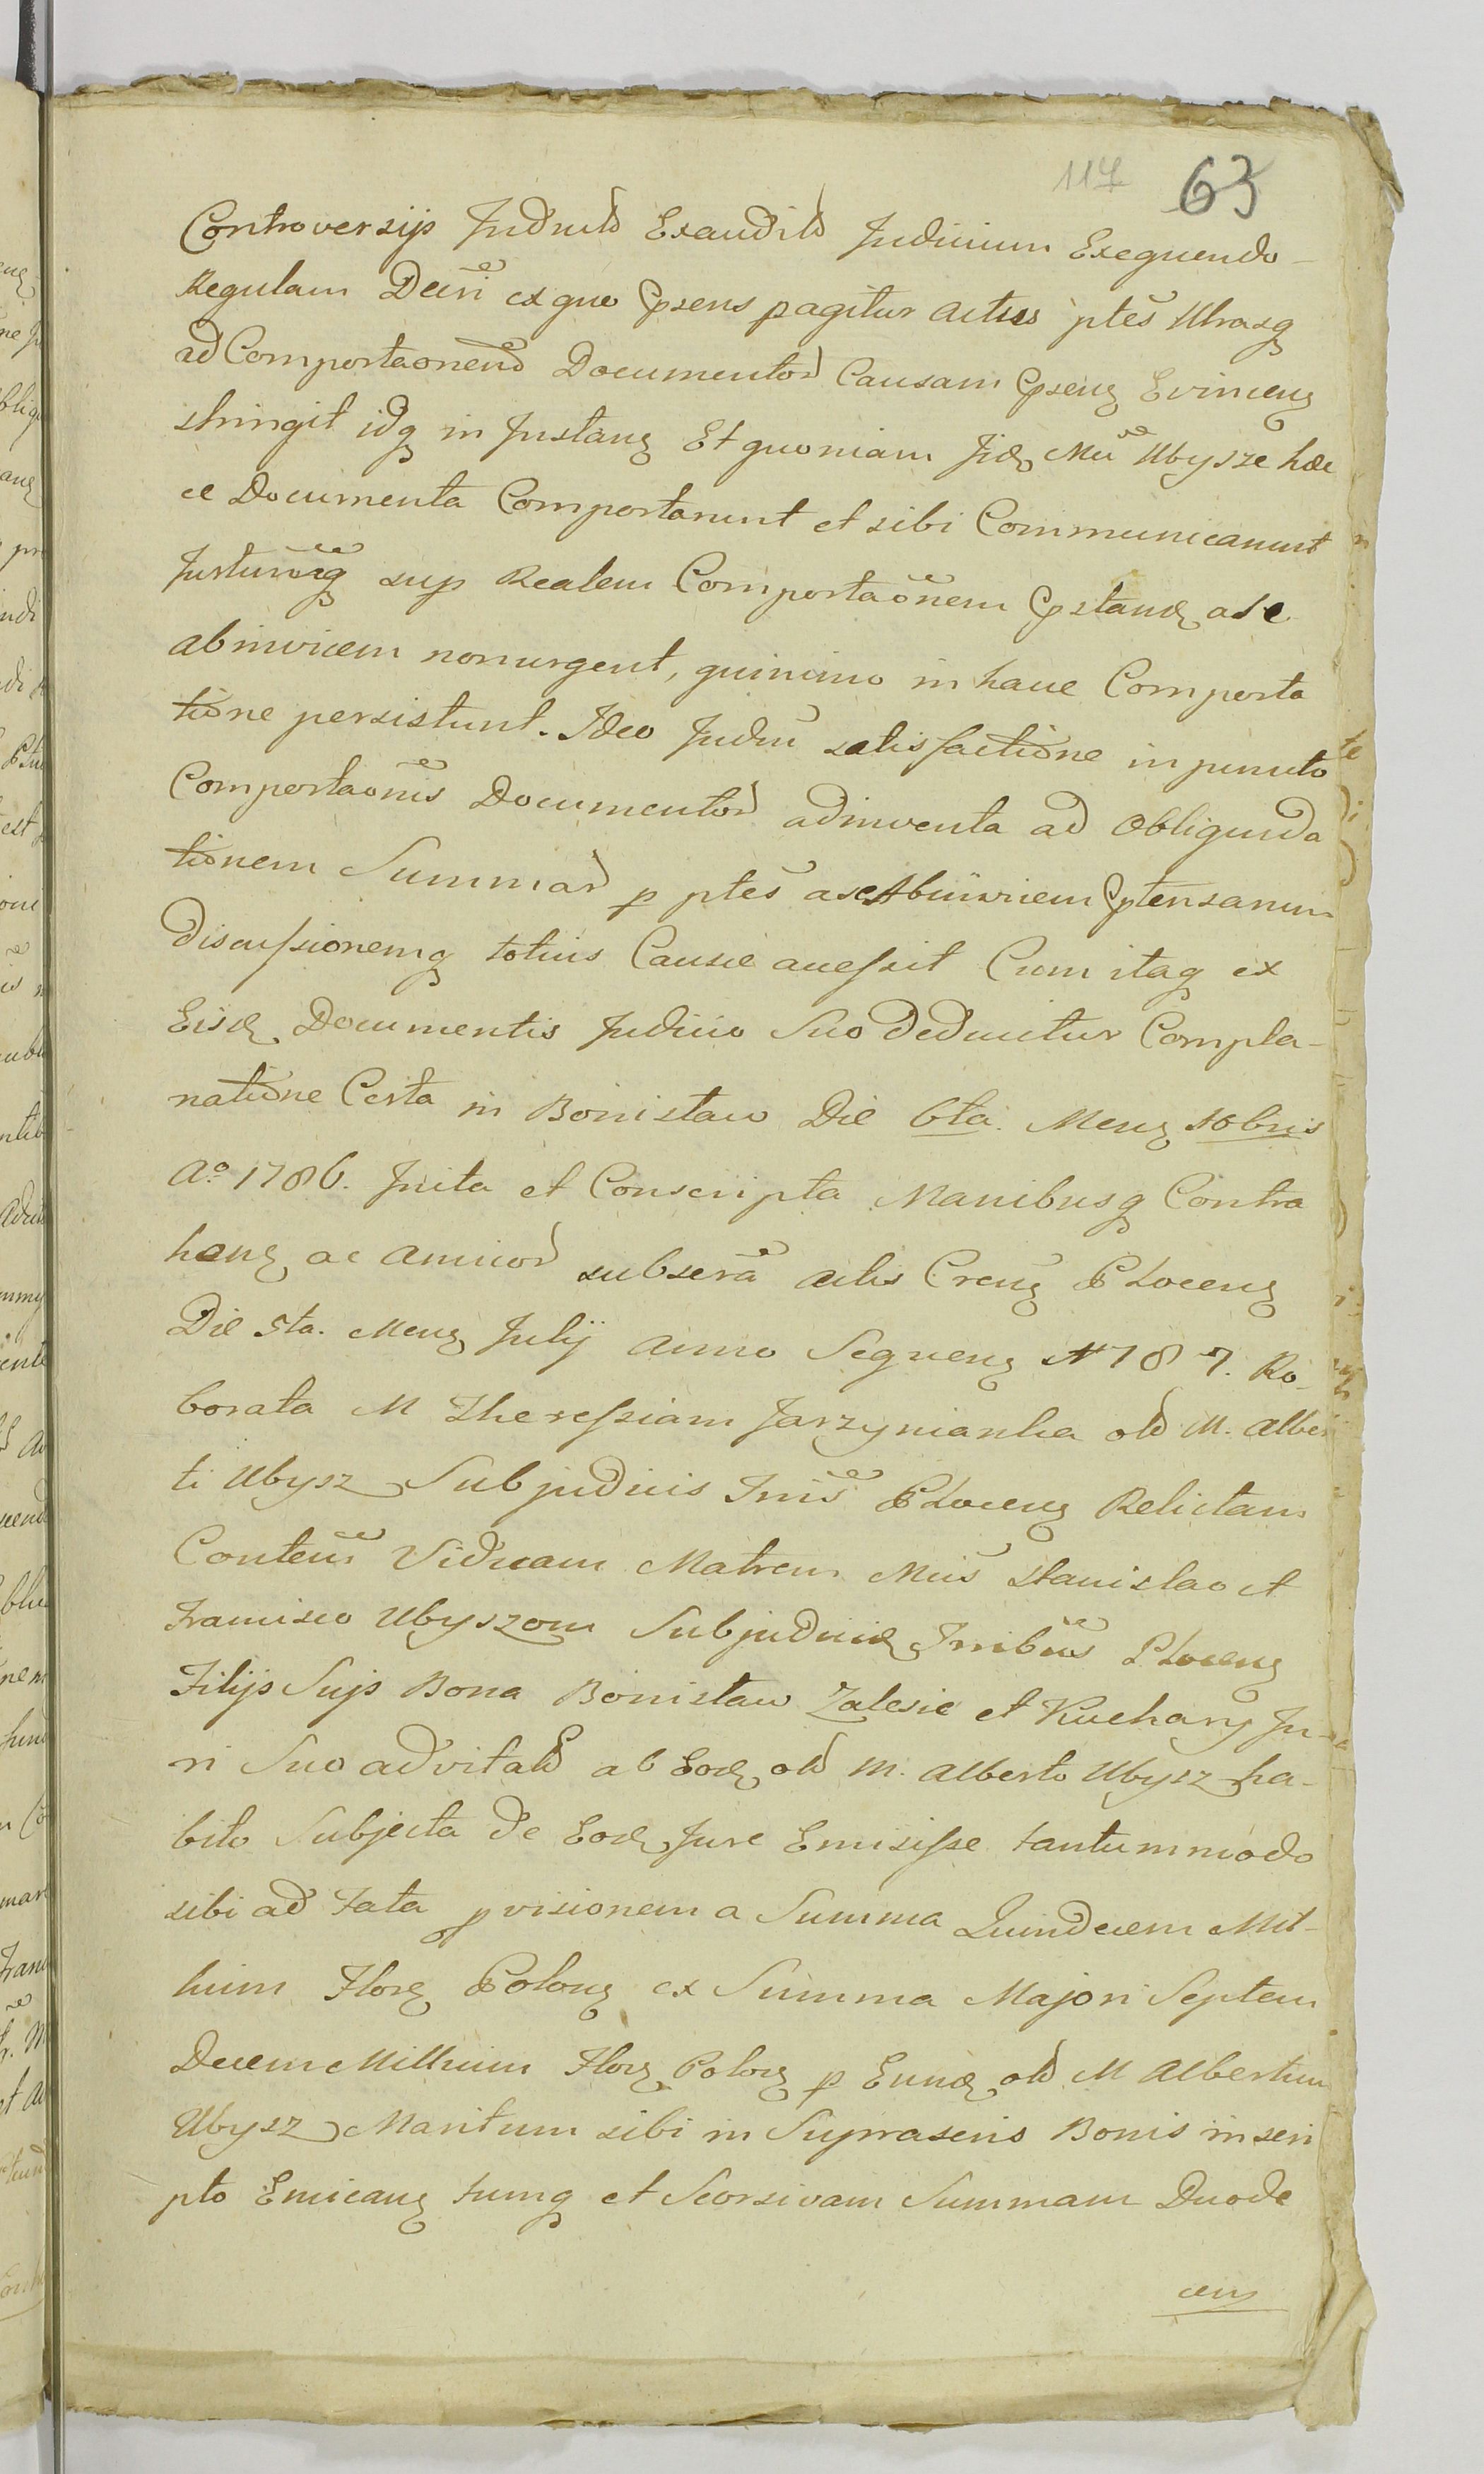 117 63
Controversijs Judrło Exaudiło Judicium Exequendo
Regulam Decri ex quo Psens pagitur actus ptes Utrasq
ad Comportaonem Documentor Causam Pseng Evinceng
stringit idq in Instanq Et quoniam Jid Mci Ubysze hæc
ce Documenta Comportarunt et sibi Communicarunt
sup Realem Comportaonem Pstand a se
abinvicem nonurgent, quinimo in hacce Comporta
tione persistunt. Ideo Judm satisfactione in puncto
Comportaonis Documentor adinventa ad Obliquida
tionem Summar p ptes a se Abinvicem Ptensarum
discussionemq totius Causæ accessit Cum itaq ex
Eisd Documentis Judicio Suo deducitur Compla-
natione Certa in Bonisław Die 6ta. Mens 10bris
Ao 1786. Inita et Conscripta Manibusq Contra
heng ac Amicor subscra actis Crens Ploceng
Die 5ta. Mens Julij Anno Sequeng 1787. Ro-
borata M Theressiam Jarzynianka olð M. Alber
ti Ubysz Subjudicis Tris Ploceng Relictam
Contem Viduam Matrem Mcis Stanislao et
Francisco Ubyszom Subjudicid Trribus Ploceng
Filijs Sujs Bona Bonisław Zalesie et Kuchary Ju-
ri Suo advitało ab Eod olð M. Alberto Ubysz ha-
bito Subjecta de Eod Jure Emisisse tantummodo
sibi ad Fata pvisionem a Summa Quindecem Mil-
lium Flor Polonq ex Summa Majori Septem
Decem Millium Flor Polon p Eund olð M Albertum
Ubysz Maritum sibi in Suprascris Bonis inscri
pto Emicanq tumq et Seorsivam Summam Duode
cem